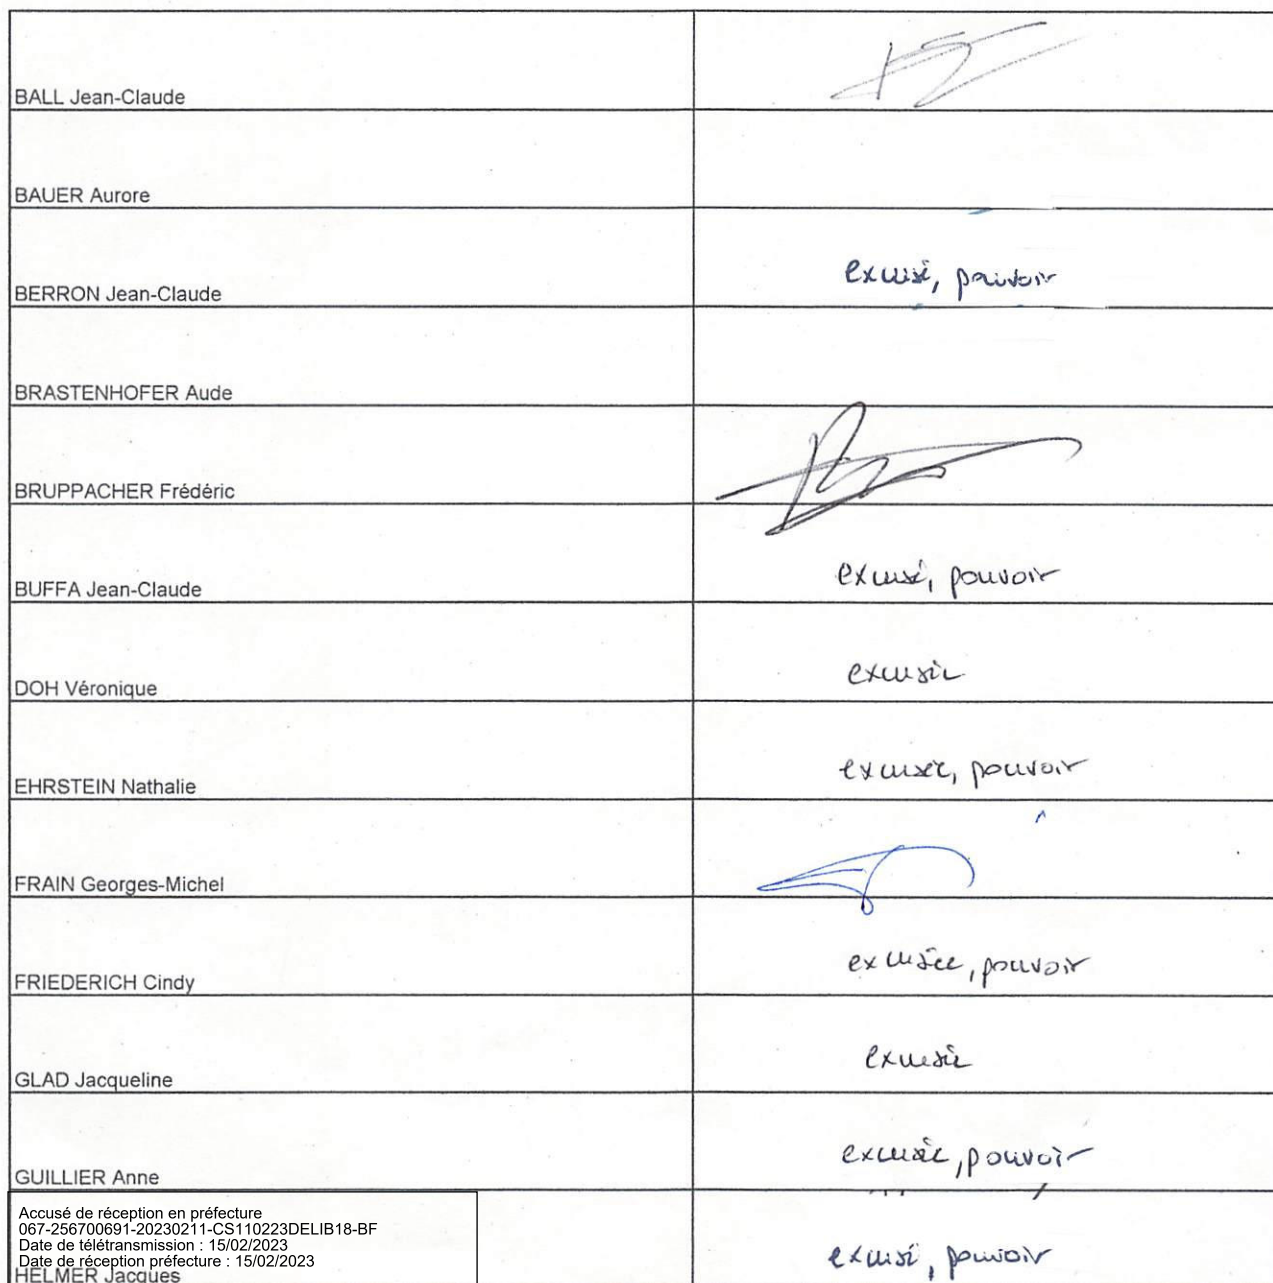 BALL Jean-Claude
BAUER Aurore
BERRON Jean-Claude excusé, pouvoir
BRASTENHOFER Aude
BRUPPACHER Frédéric
BUFFA Jean-Claude excusé, pouvoir
DOH Véronique excusée
EHRSTEIN Nathalie excusée, pouvoir
FRAIN Georges-Michel
FRIEDERICH Cindy excusée, pouvoir
GLAD Jacqueline excusée
GUILLIER Anne excusée, pouvoir
Accusé de réception en préfecture
067-256700691-20230211-CS110223DELIB18-BF
Date de télétransmission : 15/02/2023
Date de réception préfecture : 15/02/2023
HELMER Jacques excusé, pouvoir